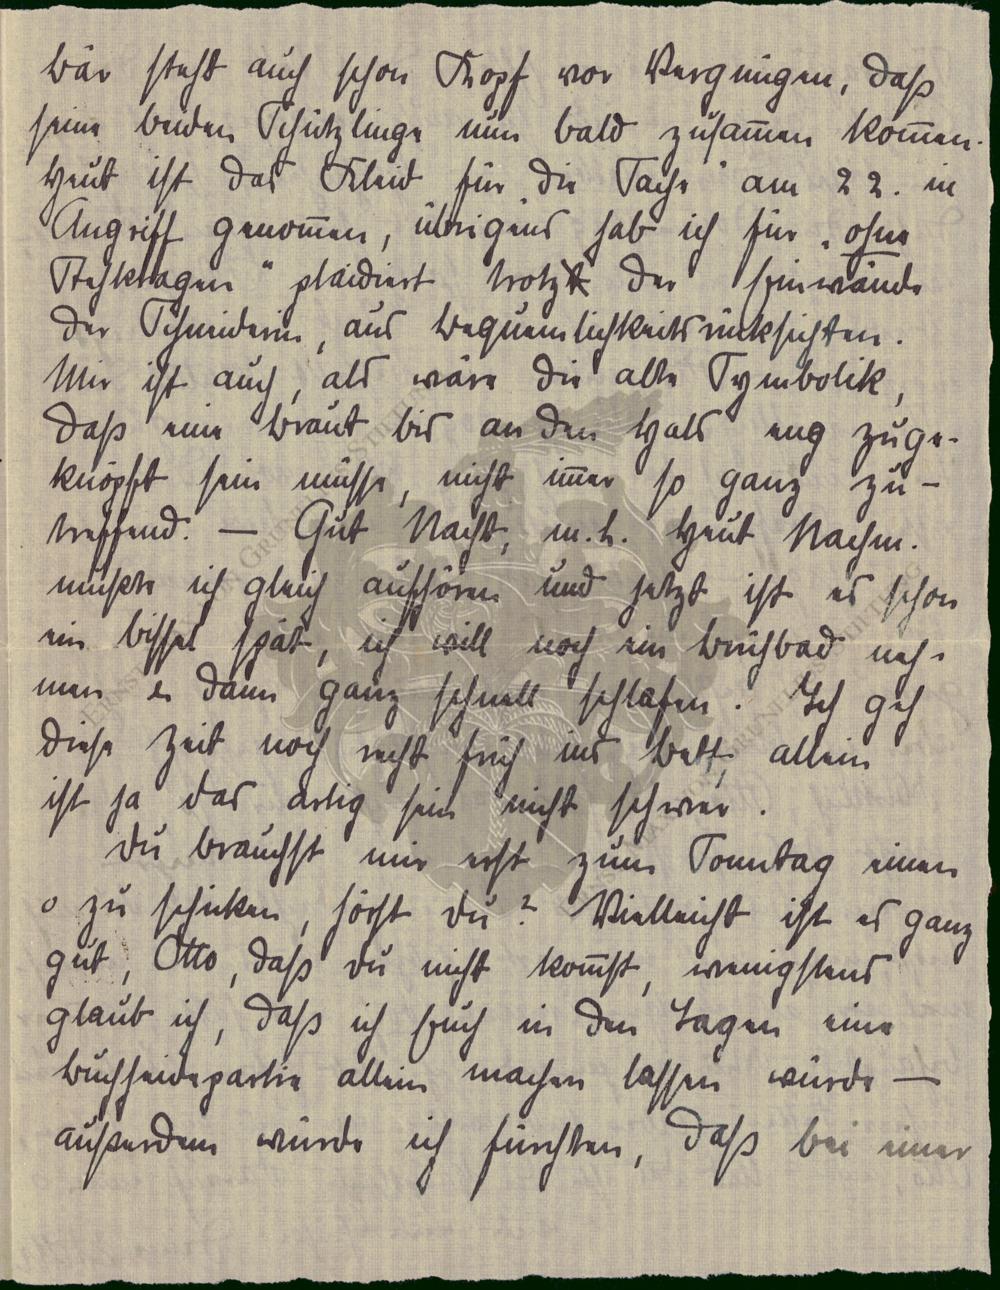 bär steht auch schon Kopf vor Vergnügen, daß
seine beiden Schützlinge nun bald zusam̅en kom̅en.
Heut ist das Kleid für die "Sache" am 22. in
Angriff genom̅en, übrigens hab ich für „ohne
Stehkragen" plaidiert trotz der Einwände
der Schneiderin, aus Bequemlichkeitsrücksichten.
Mir ist auch, als wäre die alte Symbolik,
daß eine Braut bis an den Hals eng zuge-
knöpft sein müsse, nicht im̅er so ganz zu-
treffend. — Gut Nacht, m. L. Heut Nachm.
mußte ich gleich aufhören und jetzt ist es schon
ein bissel spät, ich will noch ein Bruchbad neh-
men u. dann ganz schnell schlafen. Ich geh
diese Zeit noch recht früh ins Bett, allein
ist ja das artig sein nicht schwer.
Du brauchst mir erst zum Sonntag einen
o zu schicken, hörst du? Vielleicht ist es ganz
gut, Otto, daß du nicht kom̅st, wenigstens
glaub ich, daß ich Euch in den Tagen eine
Buchheidepartie allein machen lassen würde —
außerdem würde ich fürchten, daß bei einer